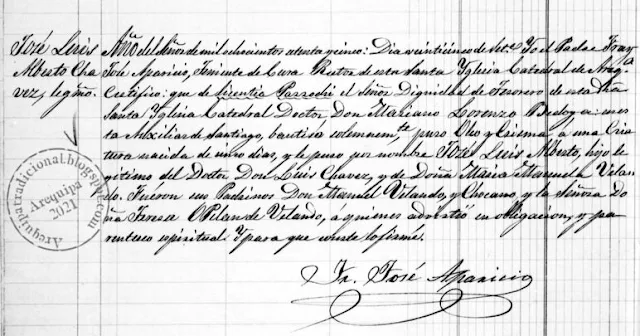 José Luis
Alberto Cha
vez, legmo.
Año del Señor de mil ochocientos ochenta y cinco: Dia veinticinco de Set.e Yo el Padre Fray
José Aparicio, Teniente de Cura Rector de esta Santa Yglesia Catedral de Areqa
Certifico: que de licentia Parrochi el Señor Dignidad de Tesorero de esta
Santa Yglesia Catedral Doctor Don Mariano Lorenzo Bedoya: en es
ta Auxiliar de Santiago, bautizó solemnemte puso Oleo y Crisma a una Cria
tura nacida de cinco dias, y le puso por nombre José Luis Alberto, hijo le
gitimo del Doctor Don Luis Chavez, y de Doña Maria Manuela Velan
do. Fueron sus Padrinos Don Manuel Velando, y la Señora Do
ña Teresa de Velando, a quienes advertió su obligacion, y pa
rentesco espiritual Y para que conste lo firmé.
Fr. José Aparicio
Arequipatradicional.blogspot.com
Arequipa
2021